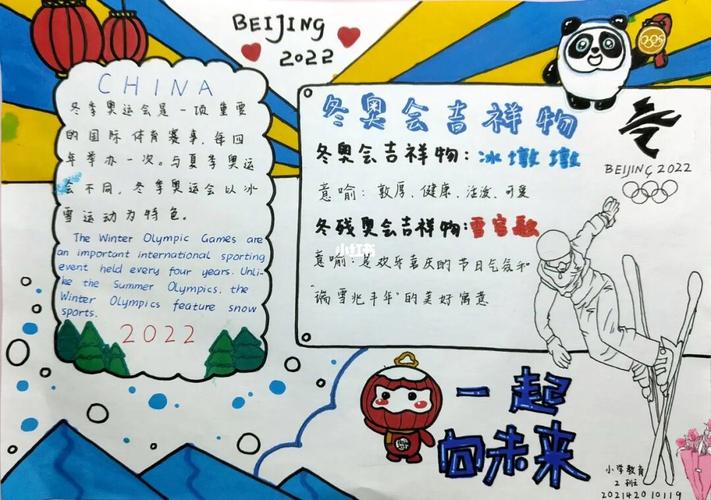 BEIJING
2022
CHINA
冬季奥运会是一项重要
的国际体育赛事，每四
年举办一次。与夏季奥运
会不同，冬季奥运会以冰
雪运动为特色。
The Winter Olympic Games are
an important international sporting
event held every four years. Unli-
ke the Summer Olympics, the
Winter Olympics feature snow
sports.
2022
冬奥会吉祥物
冬奥会吉祥物：冰墩墩
意喻：敦厚、健康、活泼、可爱
冬残奥会吉祥物：雪容融
意喻：是欢乐喜庆的节日气氛和
"瑞雪兆丰年"的美好寓意
小红书
BEIJING 2022
一起
向未来
小学教育
2班
202142010119